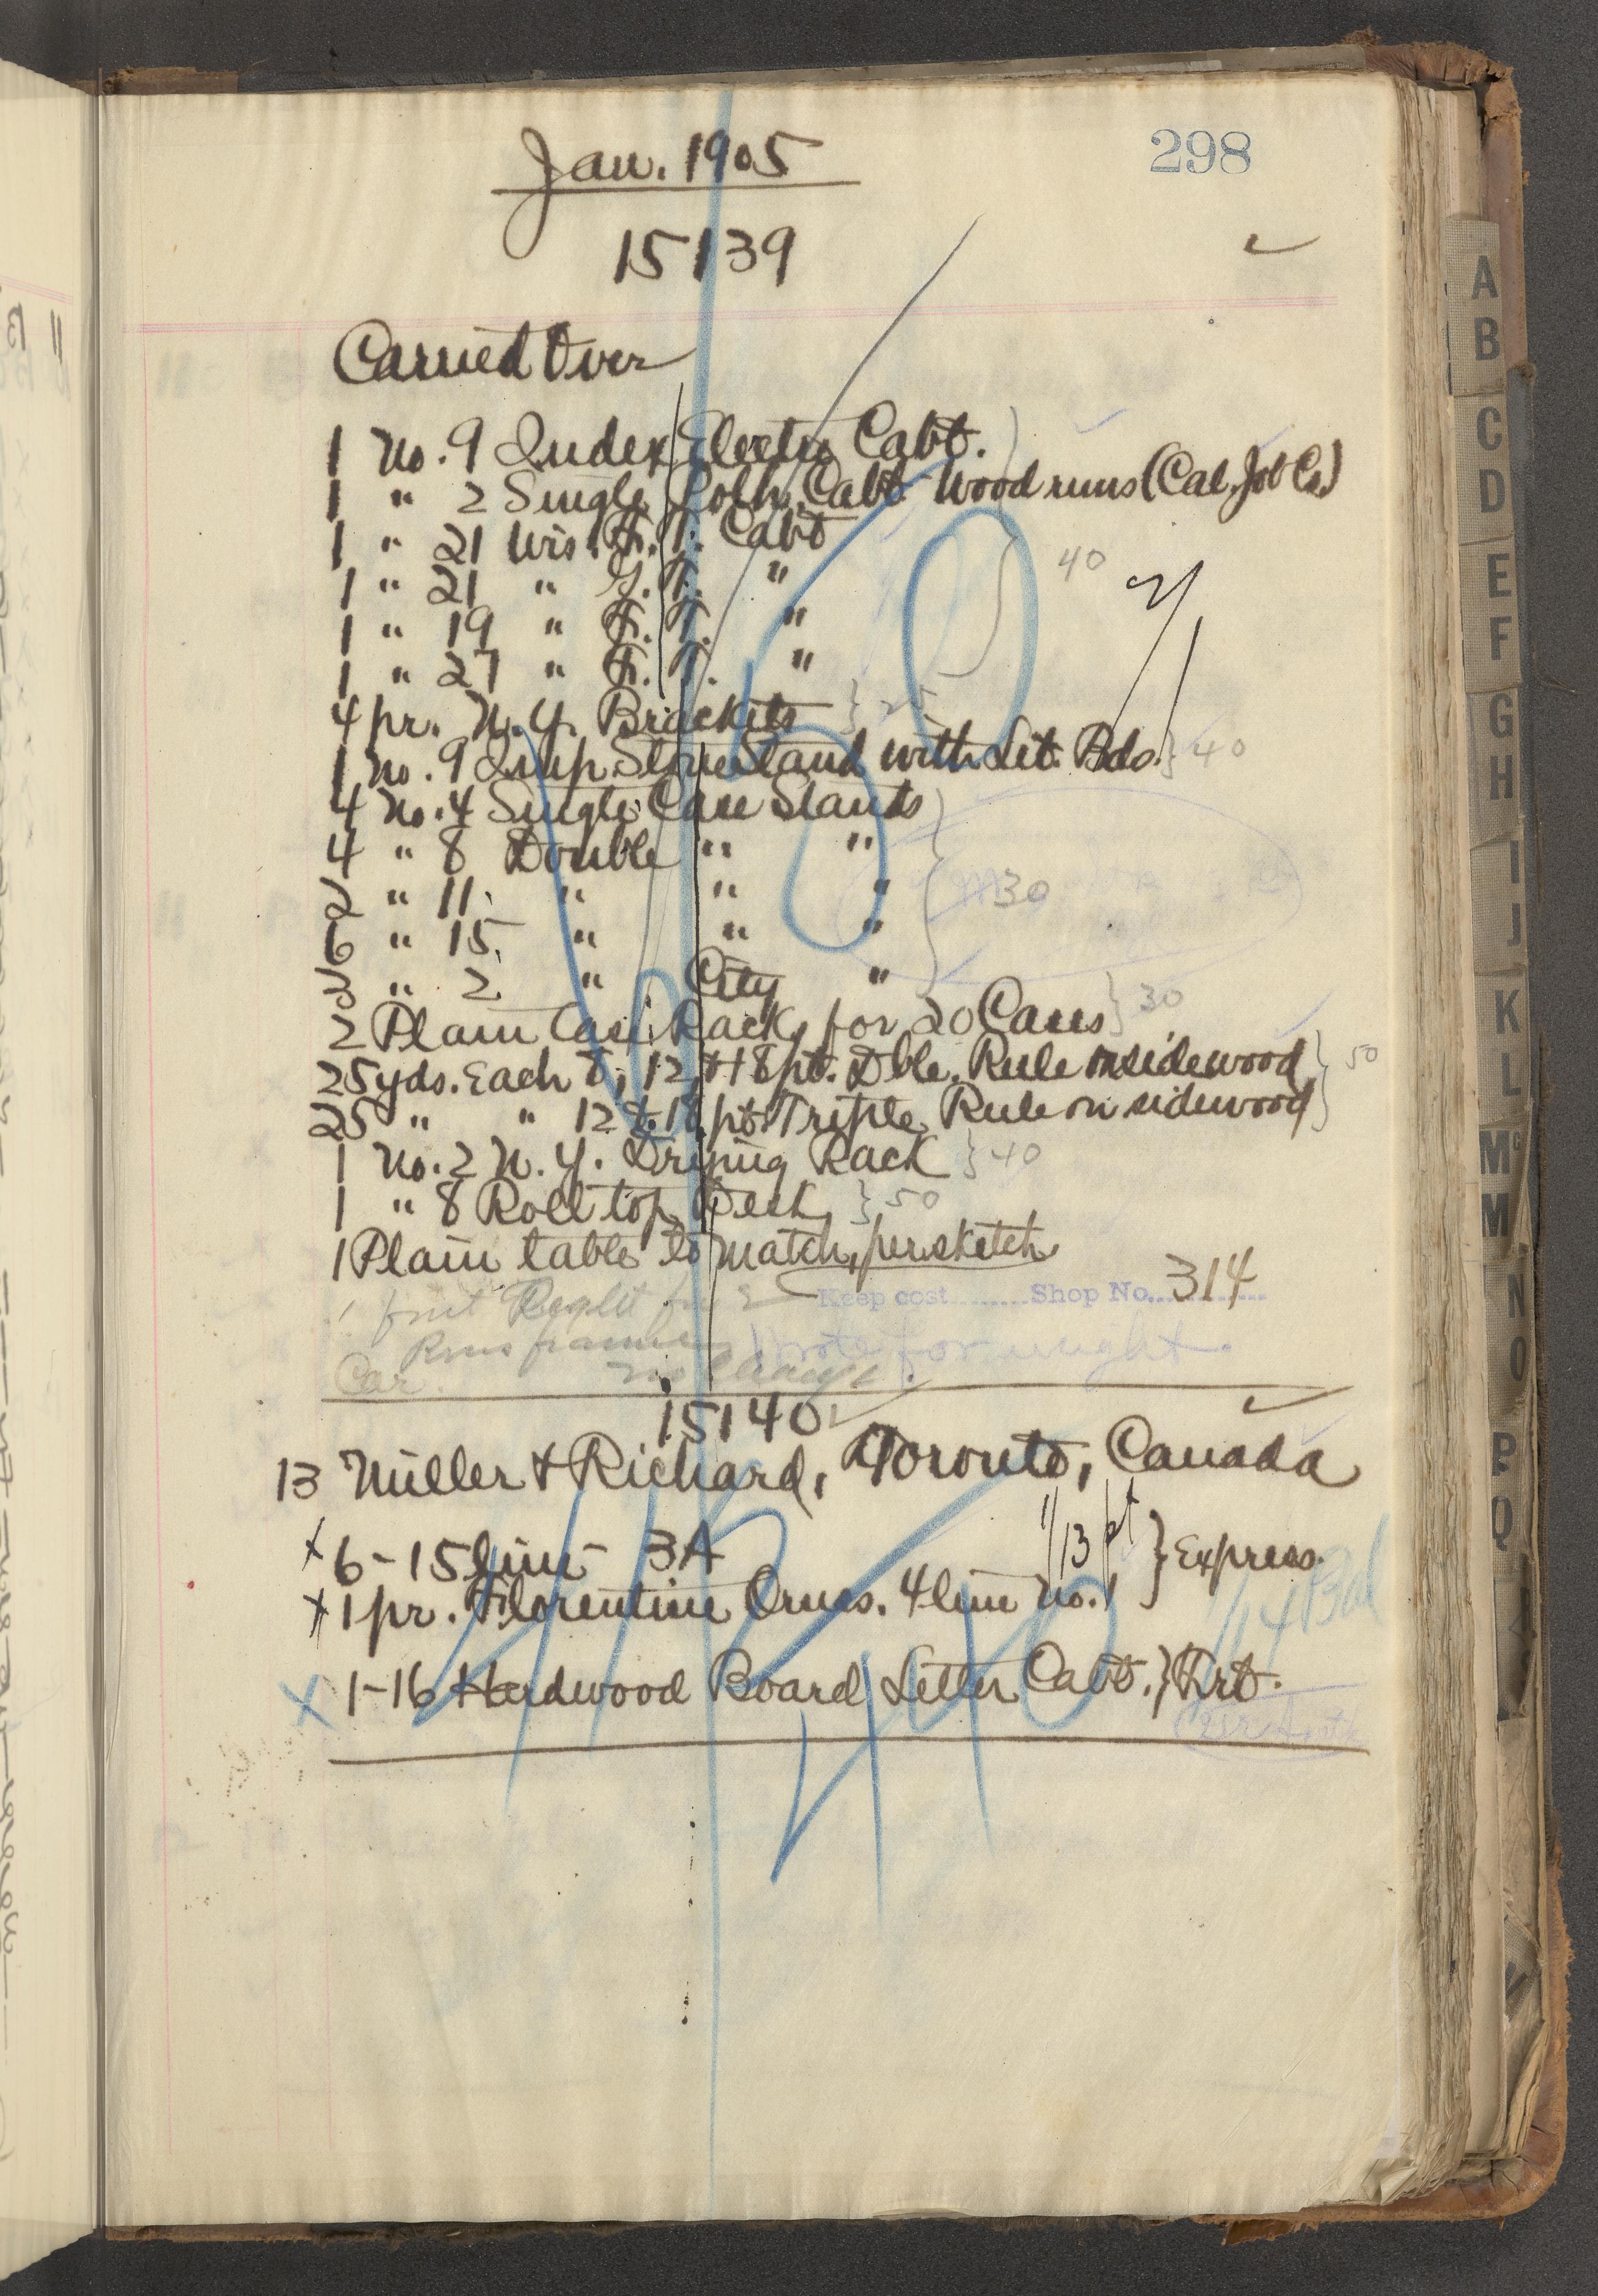 298
Jan. 1905
15139
Carried Over
1 No. 9 Index Electro Cabt.
1 " 2 Single Polh. Cabt Wood runs (Cal. Job Ca)
1 " 21 Wis. F. T. Cabt
1 " 21 " G. T. "
1 " 19 " F. T. "
1 " 27 " F. T. "
40
4 pr. N. Y. Brackets } 25
1 No. 9 Imp Stone Stand with Let. Bds. } 40
4 No. 4 Single Case Stands
4 " 8 Double " "
2 " 11. " " "
30
6 " 15. " " "
3 " 2 " City "
2 Plain Case Racks for 20 Cases } 30
25 yds. Each 8, 12, & 18 pt. Dble. Rule on sidewood } 50
25 " " 12 & 18 pt. Triple Rule on sidewood
1 No. 2 N. Y. Drying Rack } 40
1 " 8 Roll top Desk } 50
1 Plain table to match, per sketch
Keep cost ........ Shop No. 314
Reglet for 2
Runs
note for weight
Car. no charge
15140
13 Miller & Richard, Toronto, Canada
x 6-15 line 3A 1/13 pt } Express.
x 1 pr. Florentine Orns. 4 line No. 1
1/14 Bal
x 1-16 Hardwood Board Letter Cabt. } Frt.
A
B
C
D
E
F
G
H
I
J
K
L
Mc
M
N
O
P
Q